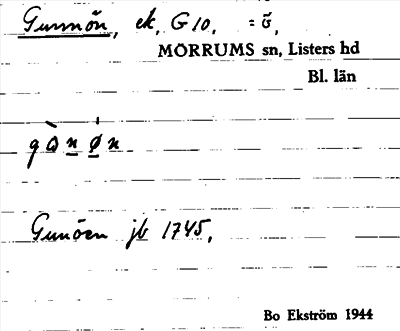 Gunnön, ek, G 10, = ö,
MÖRRUMS sn, Listers hd
Bl. län
Gunöen jb 1745,
Bo Ekström 1944